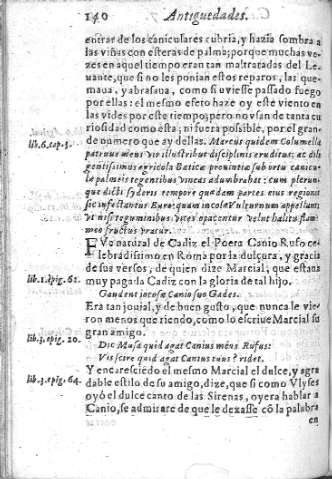 140 Antiguedades.
entrar de los caniculares cubria, y hazia sombra a
las viñas con esteras de palma; porque muchas ve-
zes en aquel tiempo eran tan maltratadas del Le-
uante, que si no les ponian estos reparos, las que-
maua, y abrasaua, como si uviesse passado fuego
por ellas: el mesmo efeto haze oy este viento en
las vides por este tiempo; pero no vsan de tanta cu
riosidad como esta; ni fuera possible, por el gran-
de numero que ay dellas. Marcus quidem Columella
lib.6.cap.5.
patruus meus vir illustribus disciplinis eruditus: ac dili
gentissimus agricola Baticæ prouintiæ sub ortu canicu-
læ palmeis tegentibus vineas adumbrabat: cum plerun-
que dicti syderis tempore quædam partes eius regionis
sic infestantur Euro: quam incolæ Vulturnum appellant:
vt nisi teguminibus vites opacentur velut halitu flam
meo fructus vratur.
FVe natural de Cadiz el Poeta Canio Rufo ce
lebradissimo en Roma por la dulçura, y gracia
de sus versos, de quien dize Marcial, que estana
lib.1.epig.61.
muy pagada Cadiz con la gloria de tal hijo.
Gaudent iocosæ Canio suo Gades.
Era tan jouial, y de buen gusto, que nunca le vie-
ron menos que riendo, como lo escriue Marcial su
lib.3.epig.20.
gran amigo.
Dic Musa quid agat Canius meus Rufus:
Vis scire quid agat Canius tuus? ridet.
Y encaresciẽdo el mesmo Marcial el dulce, y agra
lib.3.epig.64.
dable estilo de su amigo, dize, que si como Vlyses
oyó el dulce canto de las Sirenas, oyera hablar a
Canio, se admirara de que le dexasse cõ la palabra
en